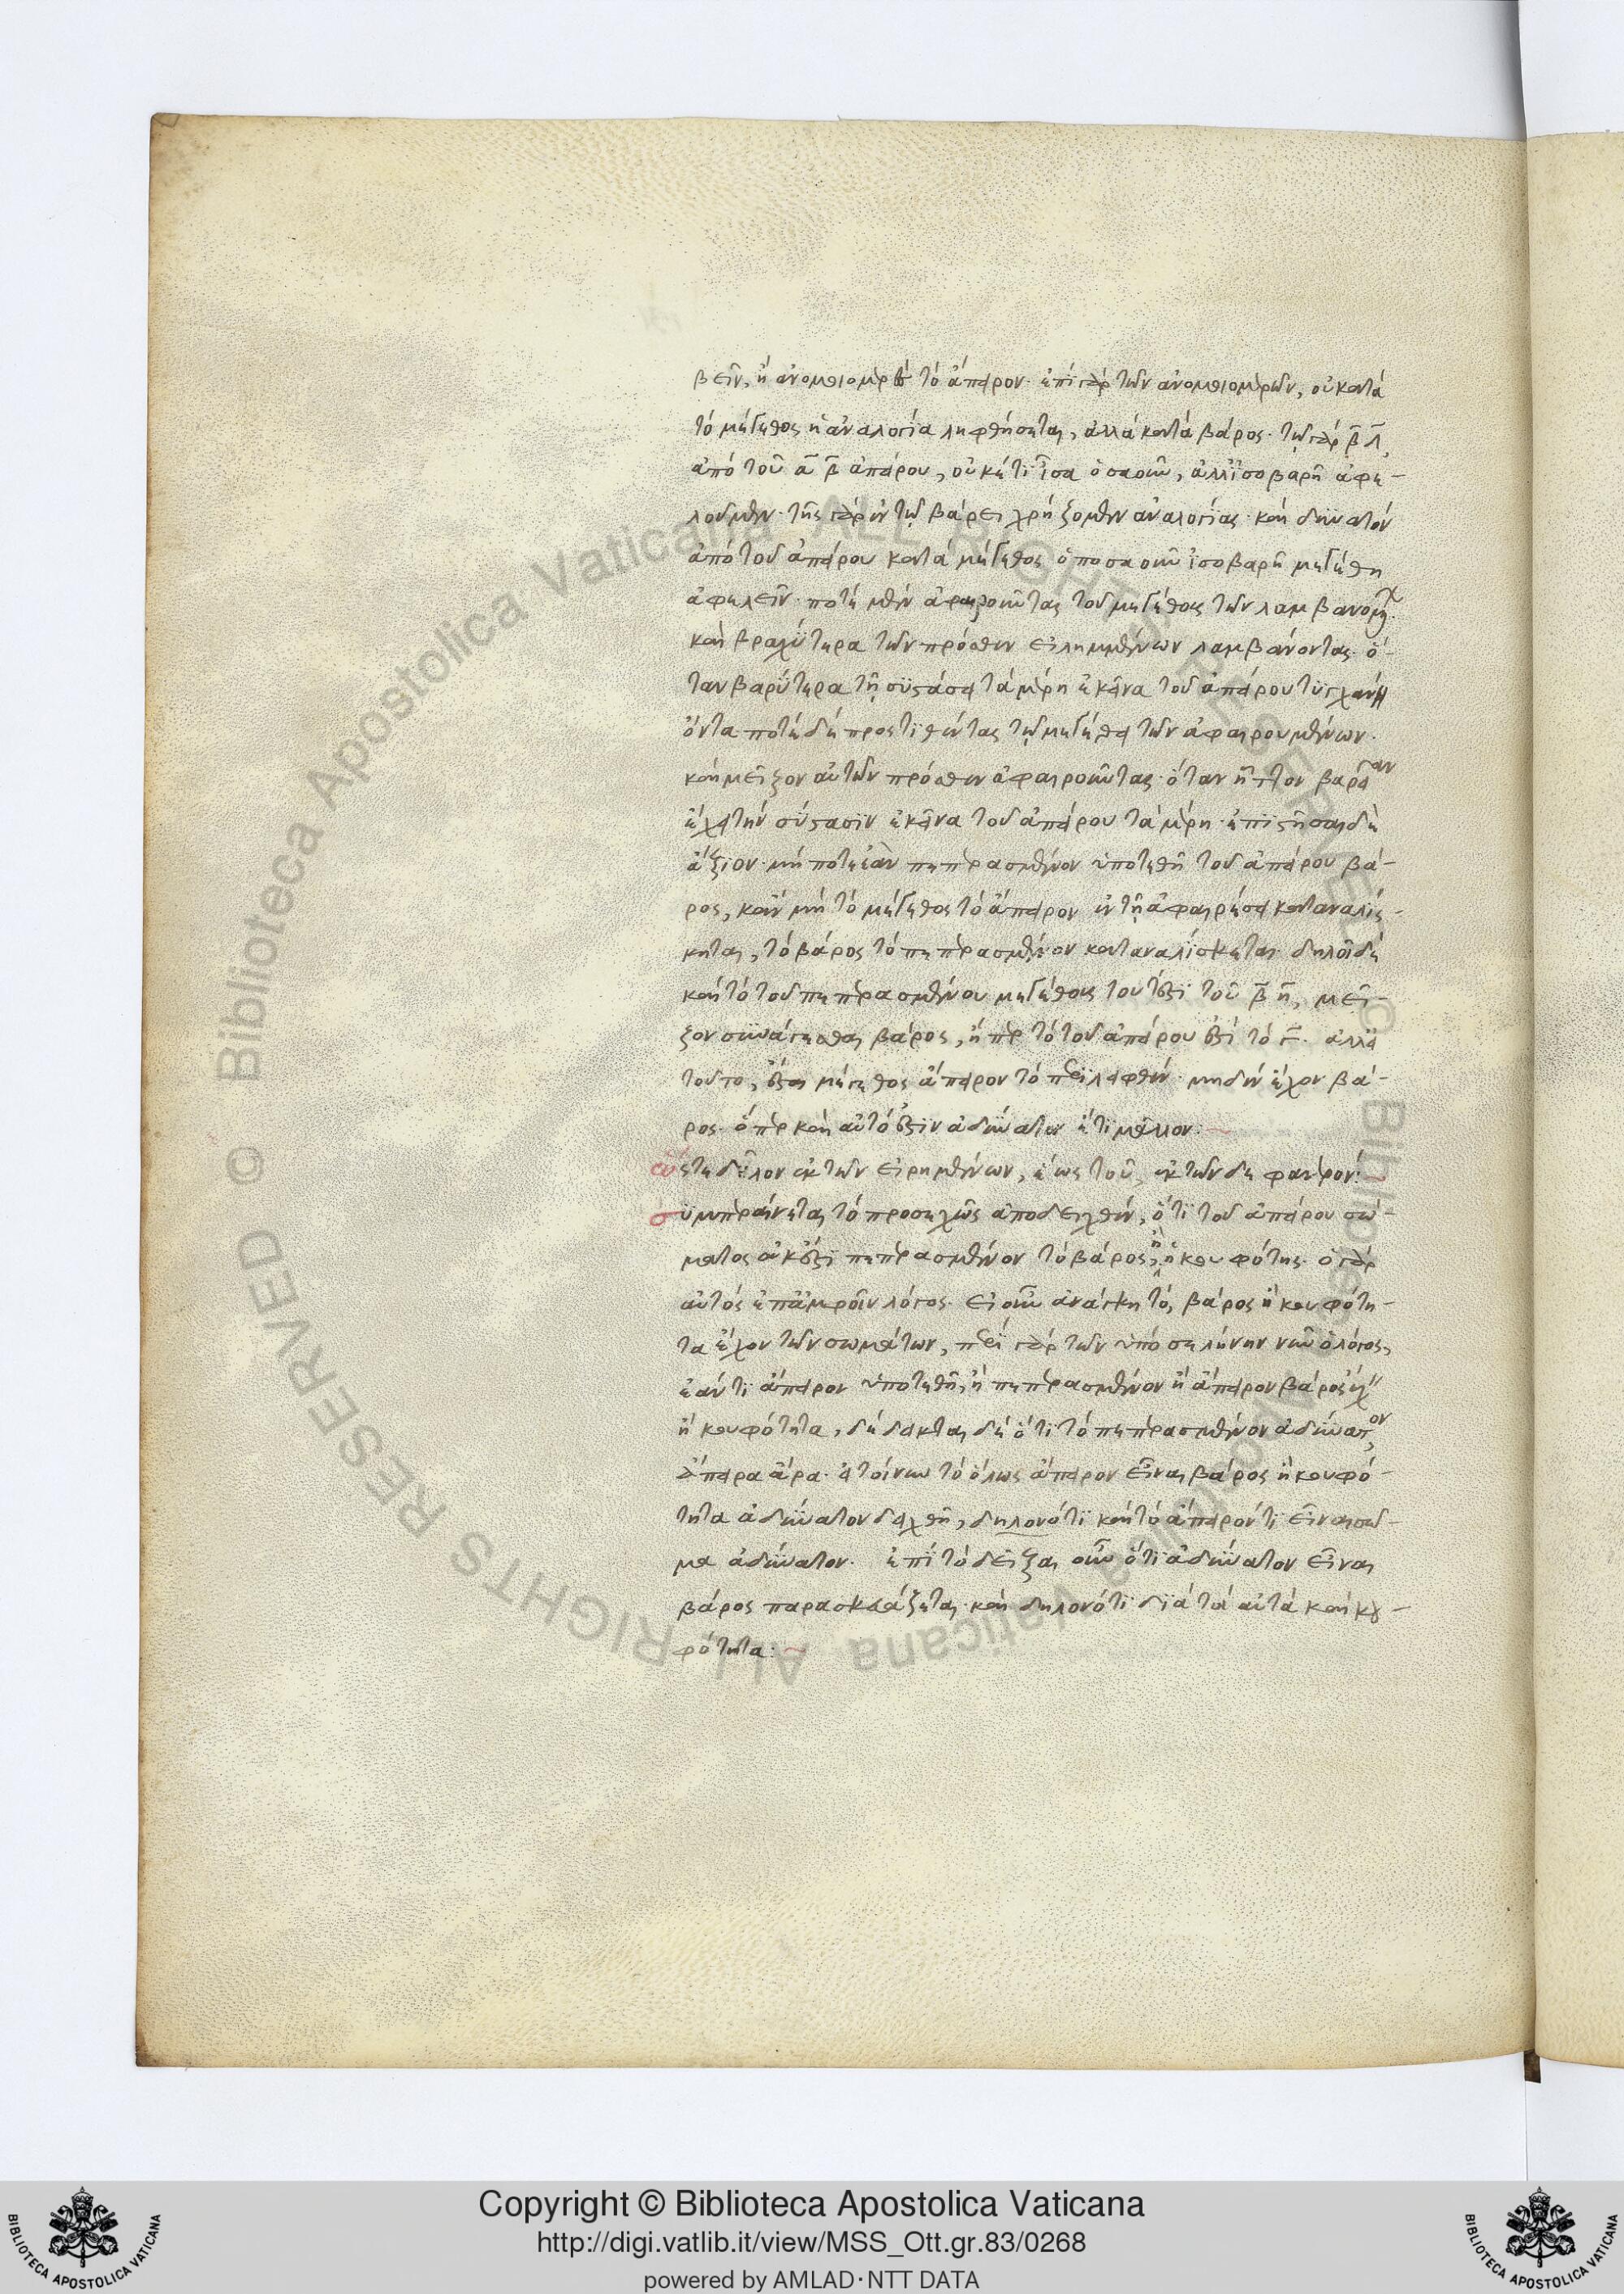 βεῖν, ἢ ἀνομοιομερὲς τὸ ἄπειρον· ἐπὶ γὰρ τῶν ἀνομοιομερῶν, οὐ κατὰ
τὸ μέγεθος ἡ ἀναλογία ληφθήσεται, ἀλλὰ κατὰ βάρος· τῷ γὰρ β̅ λ̅,
ἀπὸ τοῦ α̅ β̅ ἀπείρου, οὐκέτι ἴσα ὁσαοῦν, ἀλλ' ἰσοβαρῆ ἀφε-
λοῦμεν· τῆς γὰρ ἐν τῷ βάρει χρήζομεν ἀναλογίας· καὶ δυνατὸν
ἀπὸ τοῦ ἀπείρου κατὰ μέγεθος ὁποσαοῦν ἰσοβαρῆ μεγέθη
ἀφελεῖν· ποτὲ μὲν ἀφαιροῦντας τοῦ μεγέθους τῶν λαμβανομέ
καὶ βραχύτερα τῶν πρόσθεν εἰλημμένων λαμβάνοντας· ὅ-
ταν βαρύτερα τῇ συστάσει τὰ μέρη ἐκεῖνα τοῦ ἀπείρου τυγχάνῃ
ὄντα ποτὲ δὲ προστιθέντας τῷ μεγέθει τῶν ἀφαιρουμένων·
καὶ μεῖζον αὐτῶν πρόσθεν ἀφαιροῦντας· ὅταν ἧττον βαρεῖαν
ἔχει τὴν σύστασιν ἐκεῖνα τοῦ ἀπείρου τὰ μέρη· ἐπιστῆσαι δὲ
ἄξιον· μήποτε ἐὰν πεπερασμένον ὑποτεθῇ τοῦ ἀπείρου βά-
ρος, κἂν μὴ τὸ μέγεθος τὸ ἄπειρον ἐν τῇ ἀφαιρέσει καταναλίσ-
κηται, τὸ βάρος τὸ πεπερασμένον καταναλίσκεται· δηλοῖ δὲ
καὶ τὸ τοῦ πεπερασμένου μεγέθους τουτέστι τοῦ β̅ η̅, μεῖ-
ζον συνάγεσθαι βάρος, ἤπερ τὸ τοῦ ἀπείρου ἐστὶ τὸ γ̅· ἀλλ' εἰ
τοῦτο, ἔσται μέγεθος ἄπειρον τὸ περιλειφθέν· μηδὲν ἔχον βά-
ρος· ὅπερ καὶ αὐτό ἐστιν ἀδύνατον ἔτι μᾶλλον:
ὥστε δῆλον ἐκ τῶν εἰρημένων, ἕως τοῦ, ἐκ τῶνδε φανερόν:
συμπεραίνεται τὸ προσεχῶς ἀποδειχθέν, ὅτι τοῦ ἀπείρου σώ-
ματος οὐκ ἔστι πεπερασμένον τὸ βάρος, ἢ ἡ κουφότης· ὁ γὰρ
αὐτὸς ἐπ' ἀμφοῖν λόγος· εἰ οὖν ἀνάγκη τὸ, βάρος ἢ κουφότη-
τα ἔχον τῶν σωμάτων, περὶ γὰρ τῶν ὑπὸ σελήνην νῦν ὁ λόγος,
ἐάν τι ἄπειρον ὑποτεθῇ, ἢ πεπερασμένον ἢ ἄπειρον βάρος ἔχ
ἢ κουφότητα, δέδεικται δὲ ὅτι τὸ πεπερασμένον ἀδύνατον,
ἄπειρα ἄρα· εἰ τοίνυν τὸ ὅλως ἄπειρον εἶναι βάρος ἢ κουφό-
τητα ἀδύνατον δειχθῇ, δηλονότι καὶ τὸ ἄπειρόν τι εἶναι σῶ-
μα ἀδύνατον· ἐπὶ τὸ δεῖξαι οὖν ὅτι ἀδύνατον εἶναι
βάρος παρασκευάζεται· καὶ δηλονότι διὰ τὰ αὐτὰ καὶ κȣ-
φότητα:
Copyright © Biblioteca Apostolica Vaticana
http://digi.vatlib.it/view/MSS_Ott.gr.83/0268
powered by AMLAD·NTT DATA